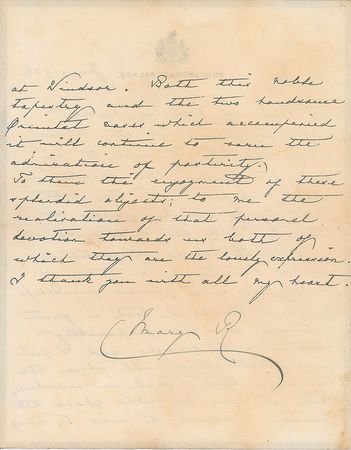 at Windsor. Both this noble
tapestry and the two handsome
Oriental vases which accompanied
it will continue to earn the
admiration of posterity.
To them the enjoyment of these
splendid objects; to me the
realisation of that personal
devotion towards us both of
which they are the lovely expression.
I thank you with all my heart.
Mary R